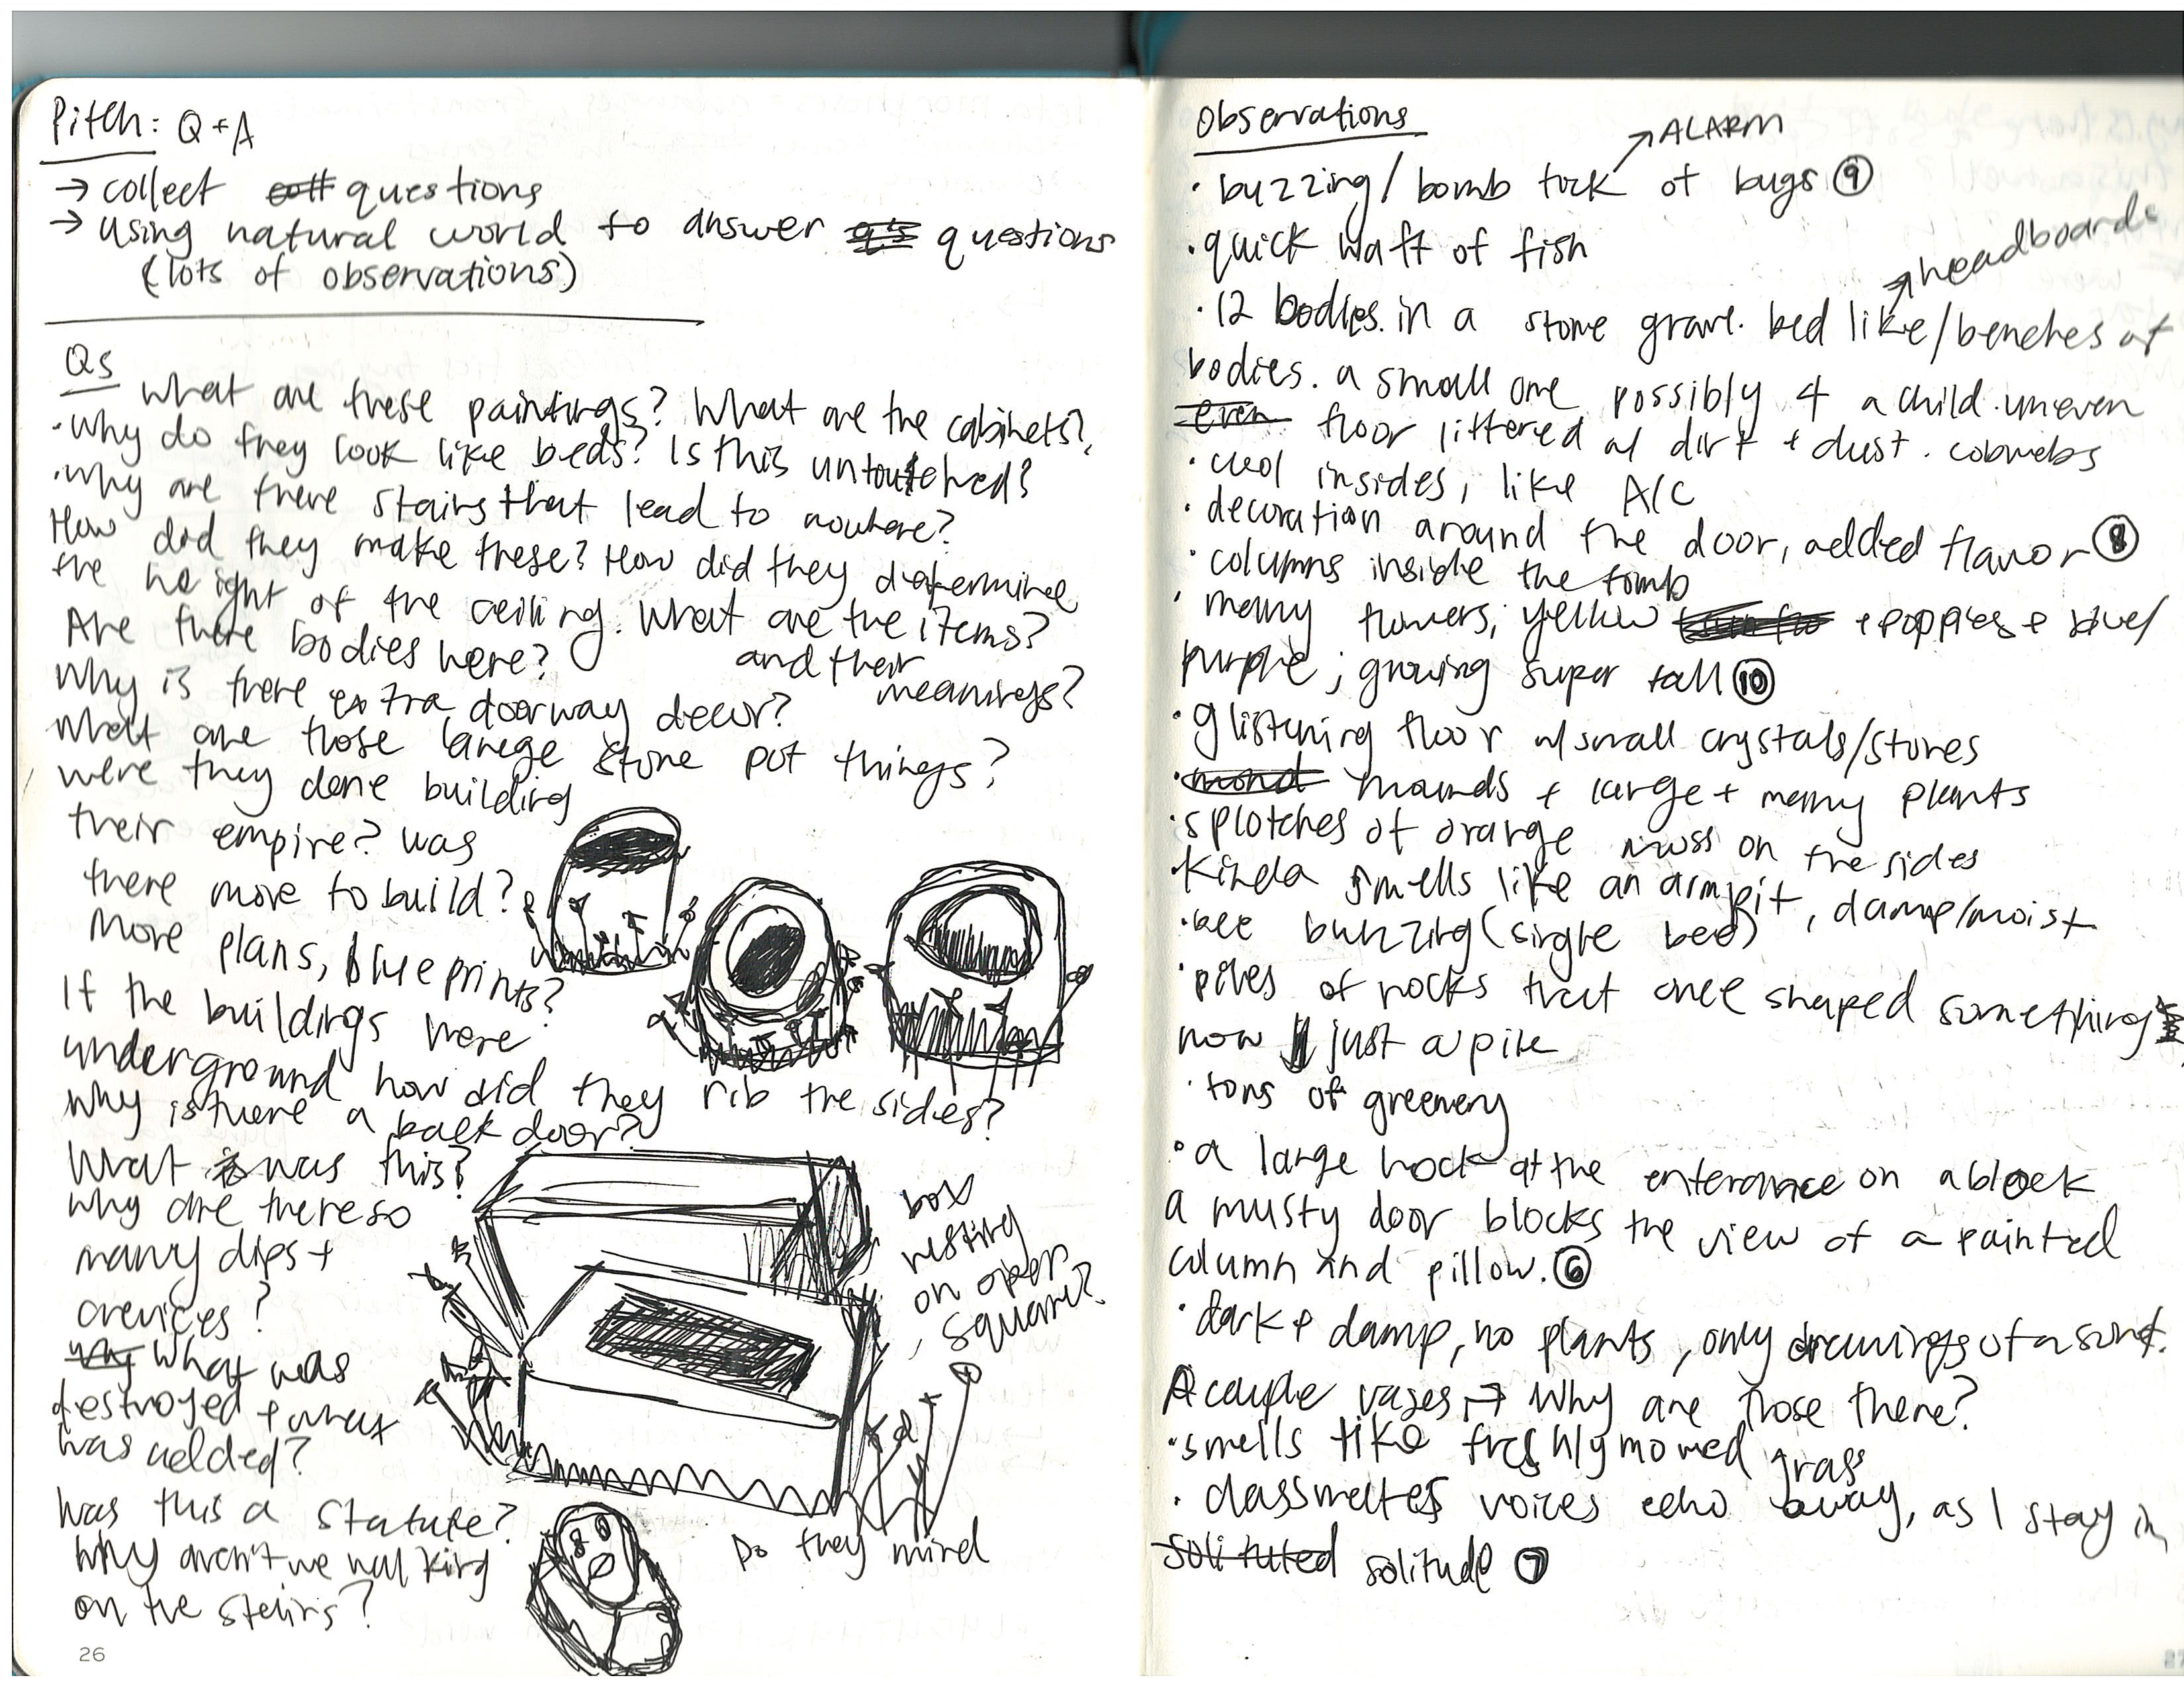 Pitch: Q + A
→ collect questions
→ using natural world to answer questions
(lots of observations)
Qs
What are these paintings? What are the cabinets?
·Why do they look like beds? Is this untoutched?
·Why are there stairs that lead to nowhere?
How did they make these? How did they determine
the height of the ceiling. What are the items?
and their
meanings?
Are there bodies here?
Why is there extra doorway decor?
What are those large stone pot things?
were they done building
their empire? was
there more to build?
More plans, blueprints?
If the buildings were
underground how did they rib the sides?
Why is there a back door?
What was this?
Why are there so
many dips +
crevices?
What was
destroyed + what
was added?
Was this a statute?
Why aren't we walking
on the stairs?
box
resting
on open
square?
Do they mind
26
Observations
→ ALARM
· buzzing / bomb tick of bugs ⑨
· quick waft of fish
→ headboards
· 12 bodies. in a stone grave. bed like/benches of
bodies. a small one possibly 4 a child. uneven
even floor littered w/ dirt + dust. cobwebs
· cool insides, like A/C
· decoration around the door, added flavor ⑧
· columns inside the tomb
· many flowers, yellow + poppies + blue/
purple; growing super tall ⑩
· glistening floor w/ small crystals/stones
· mond mounds + large + many plants
· splotches of orange moss on the sides
· kinda smells like an armpit, damp/moist
· bee buzzing (single bee)
· piles of rocks that once shaped something
now just a pile
· tons of greenery
· a large rock at the enterance on a block
a musty door blocks the view of a painted
column and pillow. ⑥
· dark + damp, no plants, only drawings of a sort.
A couple vases → Why are those there?
· smells like freshly mowed grass
· classmates voices echo away, as I stay in
solituted solitude ⑦
27